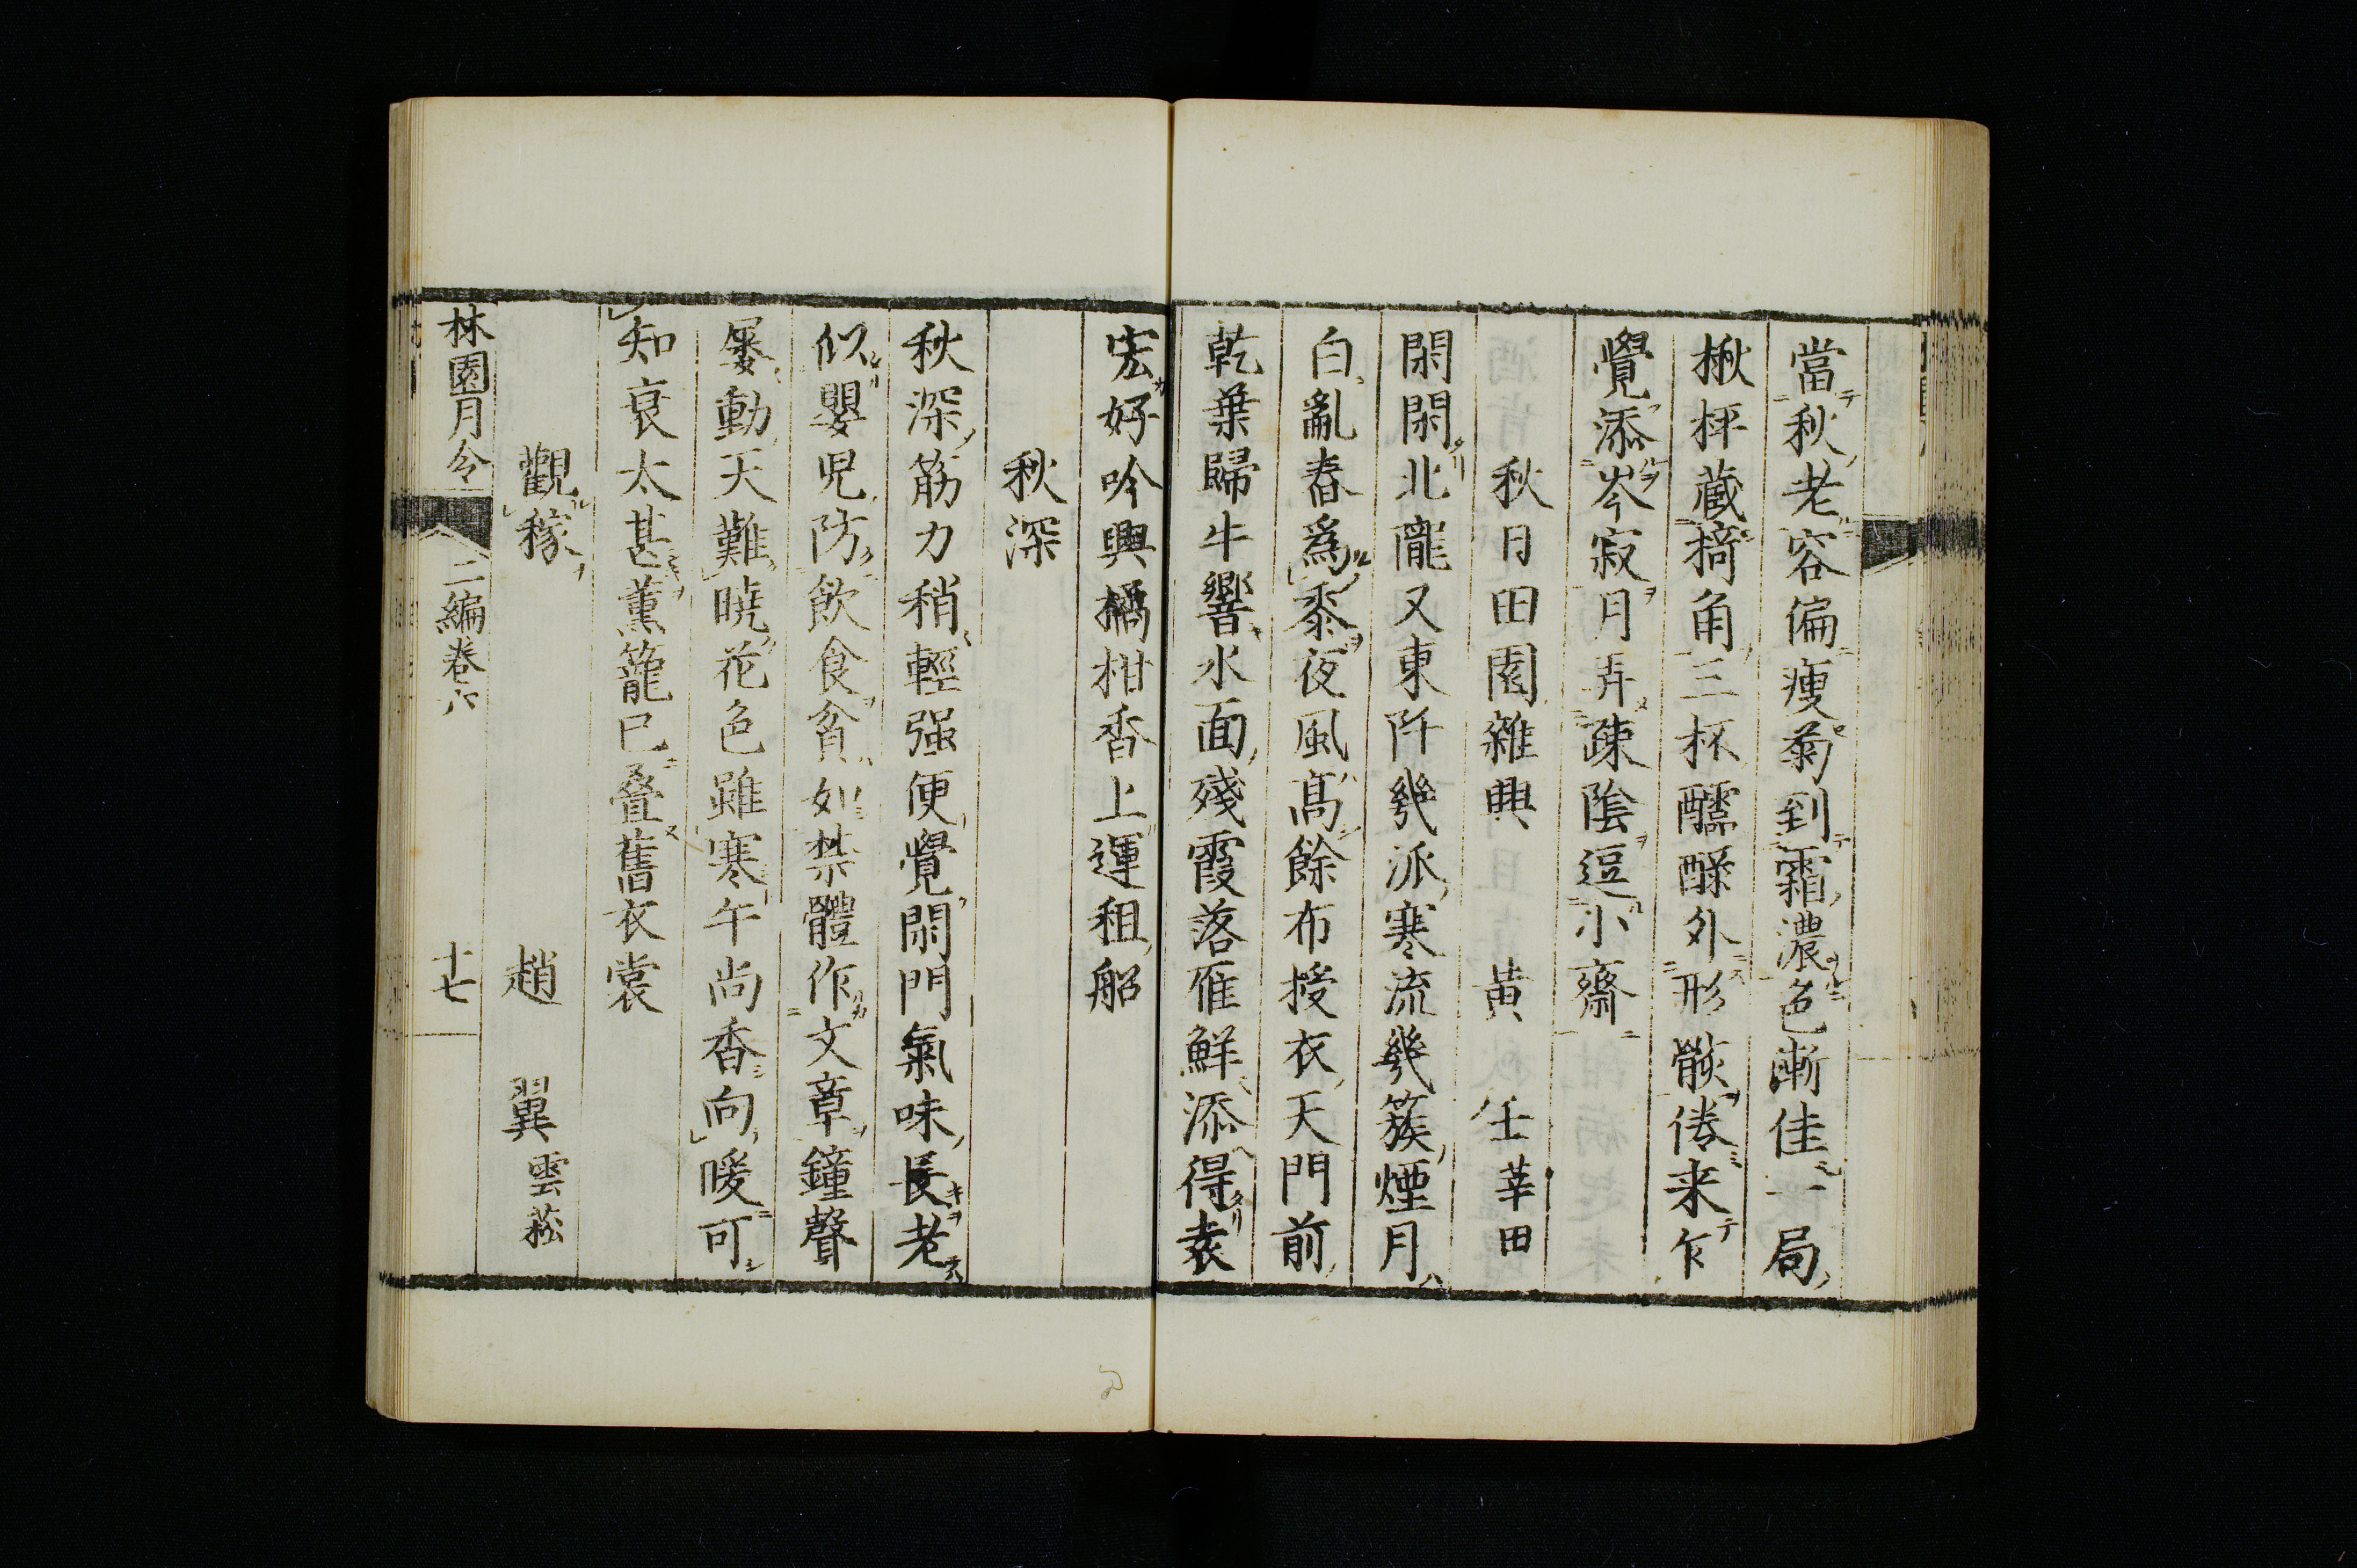 當秋老容偏瘦菊到霜濃色漸佳一局
楸枰藏掎角三杯醽醁外形骸倦来乍
覺添岑寂月弄疎陰逗小齋
秋日田園雜興　黃　任莘田
閑閑北隴又東阡幾派寒流幾簇煙月
白亂舂爲黍夜風髙餘布授衣天門前
乾葉歸牛響水面殘霞落雁鮮添得袁
宏好吟興橘柑香上運租船
秋深
秋深筋力稍輕强便覺閑門氣味長老
似嬰児防飲食貧如禁體作文章鐘聲
屡動天難曉花色雖寒午尚香向暖可
知衰太甚薫籠已疊舊衣裳
觀稼　趙　翼雲菘
林園月令　二編卷六　十七